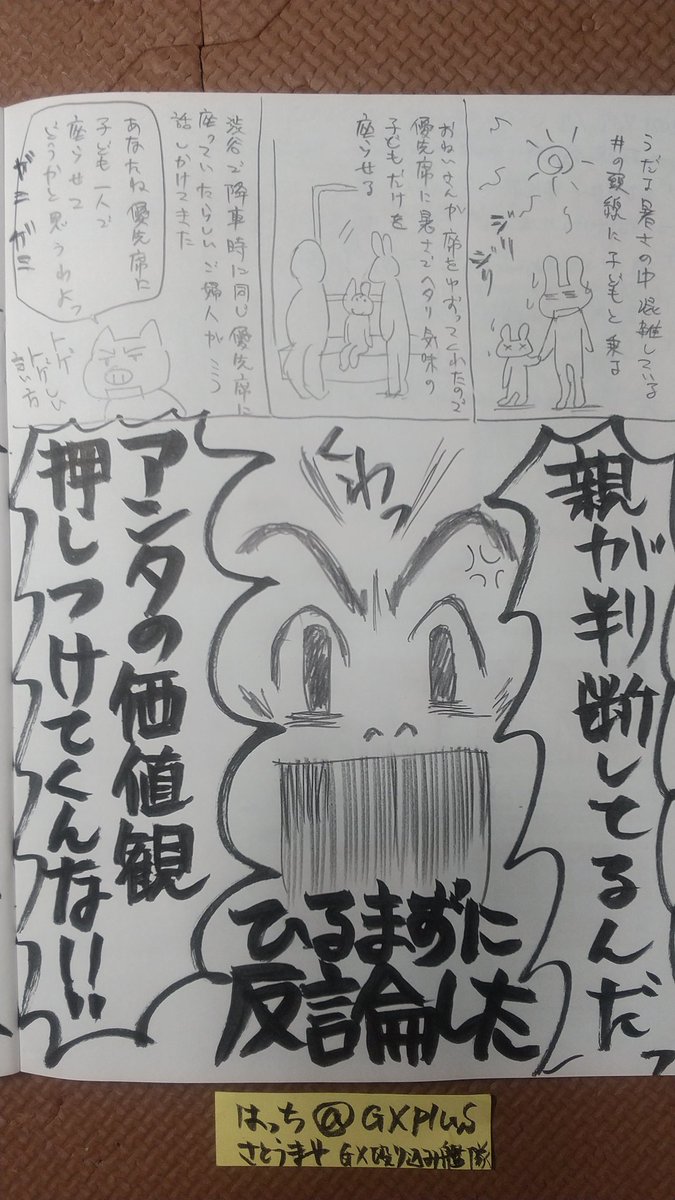 うだる暑さの中混雑している
井の頭線に子どもと乗る
ジリ
ジリ
おねいさんが席をゆずってくれたので
優先席に暑さでヘタり気味の
子どもだけを
座らせる
渋谷で降車時に同じ優先席に
座っていたらしいご婦人がこう
話しかけてきた
あなたね優先席に
子ども一人で
座らせて
どうかと思うわよっ
ガミ
ガミ
トゲ
トゲしい
言い方
くわっ
親が判断してるんだっ
アンタの価値観
押しつけてくんな!!
ひるまずに
反論した
はっち@GXplus
さとうませ GX殴り込み艦隊